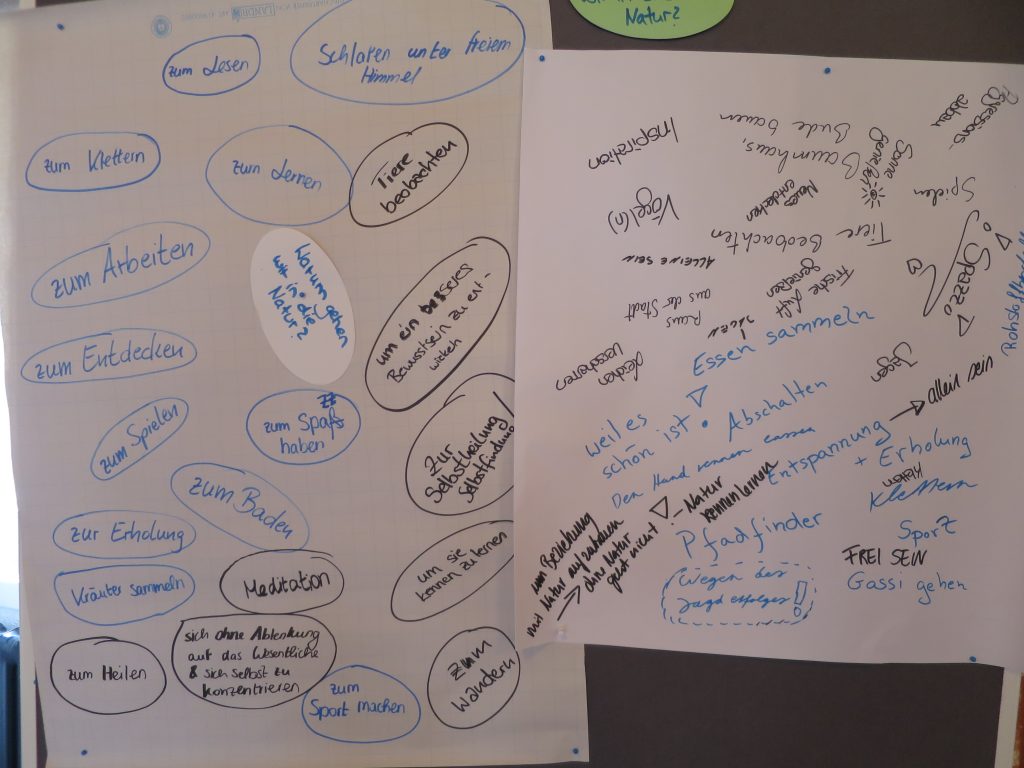 Natur?
zum Lesen
Schlafen unter freiem
Himmel
zum Klettern
zum Lernen
Tiere
beobachten
zum Arbeiten
Warum gehen
wir in die
Natur?
um ein besseres
Bewusstsein zu ent-
wickeln
zum Entdecken
zum Spielen
zum Spaß
haben
zur
Selbstheilung/
Selbstfindung
zum Baden
zur Erholung
um sie
kennen zu lernen
Kräuter sammeln
Meditation
zum Heilen
sich ohne Ablenkung
auf das Wesentliche
& sich selbst zu
konzentrieren
zum
Sport machen
zum
wandern
Aggressions-
abbau
Baumhaus,
Bude bauen
Inspiration
Sonne
genießen
Spielen
Neues
entdecken
Vögel(n)
Tiere Beobachten
ALLEINE SEIN
Spazz
Frische Luft
genießen
Raus
aus der Stadt
Essen sammeln
Jagen
weil es
schön ist.
Abschalten
Den Hund rennen lassen
Entspannung → allein sein
+ Erholung
Klettern
Klettern
um Beziehung
mit Natur aufzubauen
→ ohne Natur
geht nicht!
- Natur
kennenlernen
Pfadfinder
Sport
FREI SEIN
Gassi gehen
Wegen des
Jagderfolges!